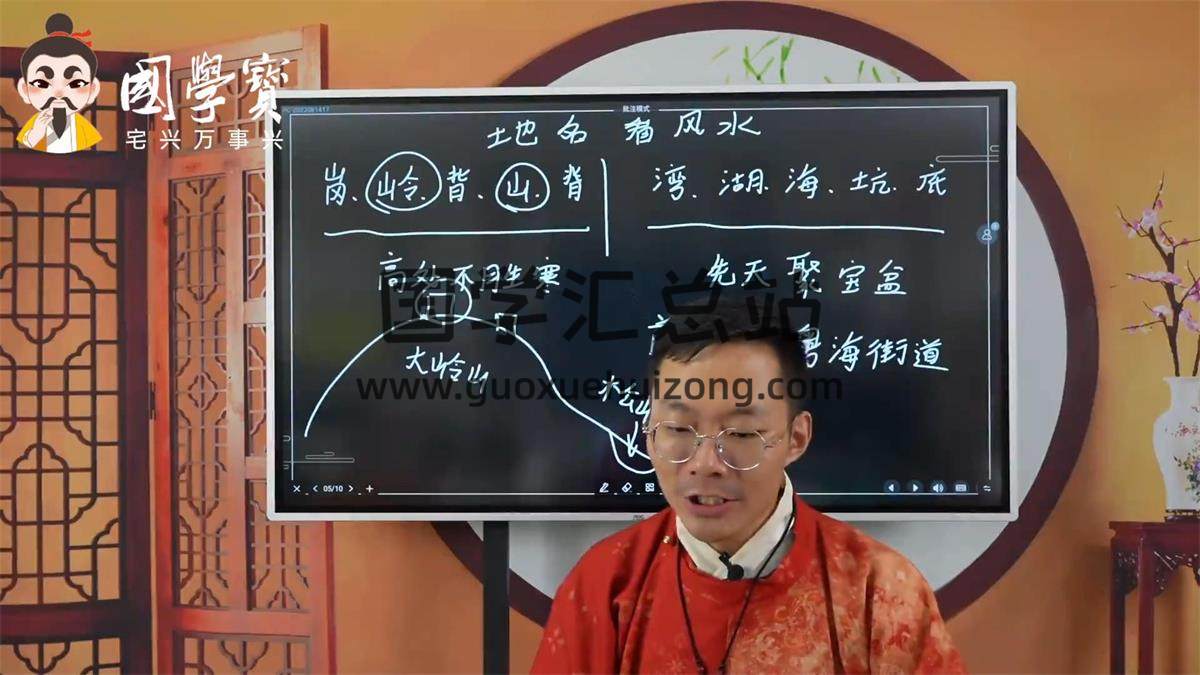 國學寶
宅兴万事兴
批注模式
地名 看风水
岗、岭、背、山、脊
湾、湖、海、坑、底
高处不胜寒
先天聚宝盆
国学汇总站
大岭山
粤海街道
www.guoxuehuizong.com
05/10